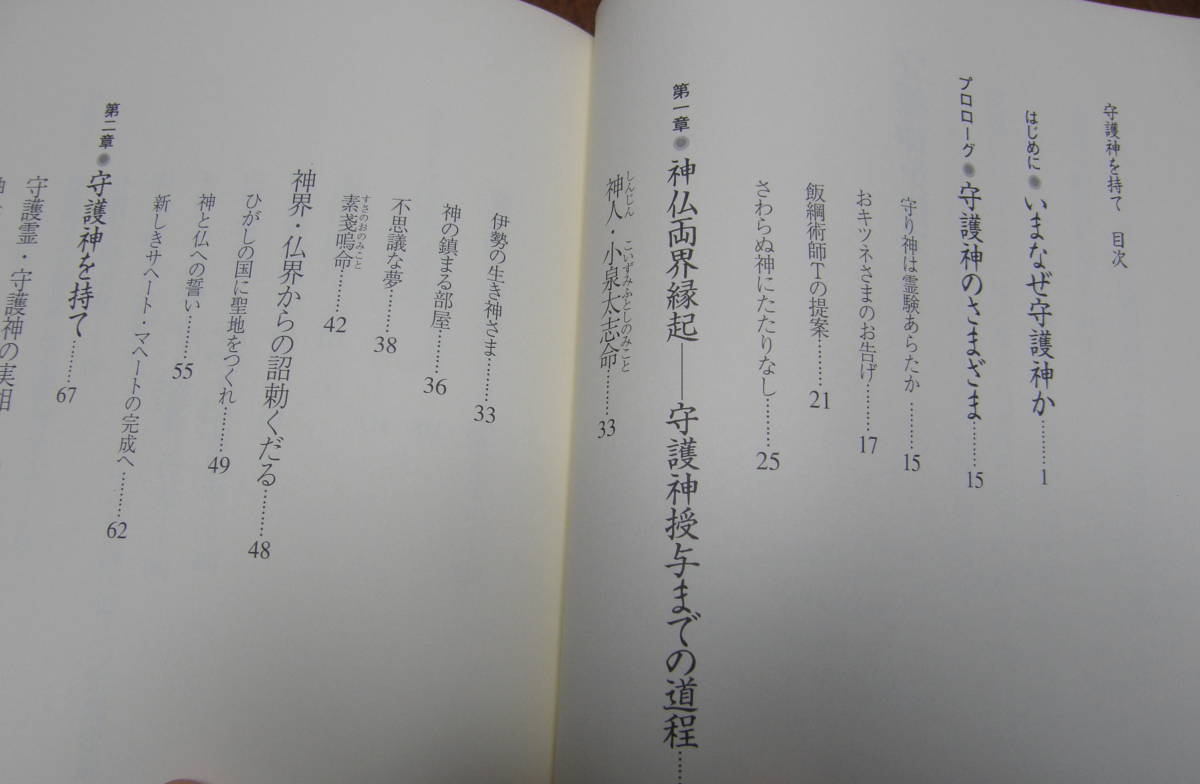 守護神を持て 目次
はじめに●いまなぜ守護神か………1
プロローグ●守護神のさまざま………15
守り神は霊験あらたか………15
おキツネさまのお告げ………17
飯綱術師Tの提案………21
さわらぬ神にたたりなし………25
第一章●神仏両界縁起――守護神授与までの道程……
神人・小泉太志命………33
しんじん こいずみふとしのみこと
伊勢の生き神さま………33
神の鎮まる部屋………36
不思議な夢………38
素戔嗚命………42
すさのおのみこと
神界・仏界からの詔勅くだる………48
ひがしの国に聖地をつくれ………49
神と仏への誓い………55
新しきサヘート・マヘートの完成へ………62
第二章●守護神を持て………67
守護霊・守護神の実相